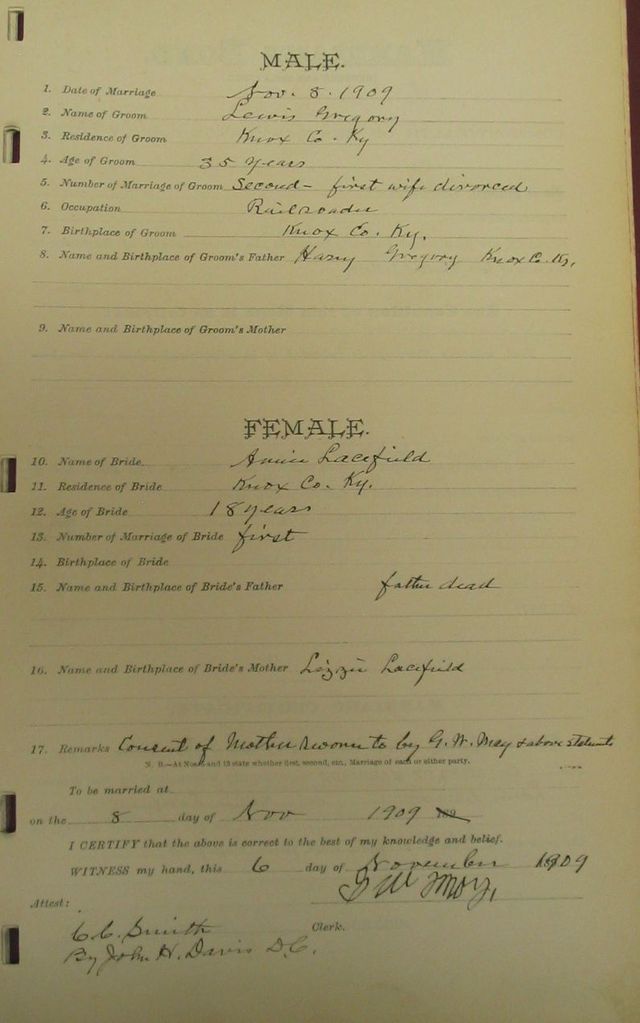 MALE.
1. Date of Marriage Nov. 8. 1909
2. Name of Groom Lewis Gregory
3. Residence of Groom Knox Co. Ky
4. Age of Groom 35 years
5. Number of Marriage of Groom Second - first wife divorced
6. Occupation Railroader
7. Birthplace of Groom Knox Co. Ky.
8. Name and Birthplace of Groom's Father Harry Gregory Knox Co. Ky.
9. Name and Birthplace of Groom's Mother
FEMALE.
10. Name of Bride Annie Lacefield
11. Residence of Bride Knox Co. Ky.
12. Age of Bride 18 years
13. Number of Marriage of Bride first
14. Birthplace of Bride
15. Name and Birthplace of Bride's Father father dead
16. Name and Birthplace of Bride's Mother Lizzie Lacefield
17. Remarks Consent of Mother sworn to by G. W. May & above statements
N. B.—At Nos. 5 and 13 state whether first, second, etc., Marriage of each or either party.
To be married at
on the 8 day of Nov 1909
I CERTIFY that the above is correct to the best of my knowledge and belief.
WITNESS my hand, this 6 day of November 1909
G W May,
Attest:
C. C. Smith Clerk.
By John H. Davis D.C.